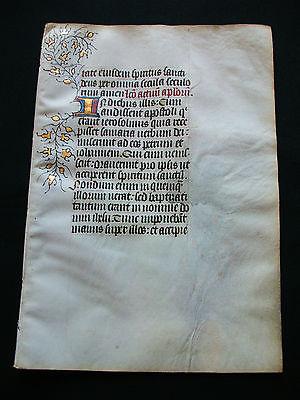 tate eiusdem spiritus sancti
deus per omnia secula seculo
rum amen lcō actuum aplorū
In diebus illis: Cum
audissent apostoli q̄
erant ierosolimis quia rece
pisset samaria uerbum dei
miserunt ad eos petrum et
iohannem. Qui cum uenis
sent: orauerunt pro ipsis ut
acciperent spiritum sanctū.
Nondum enim in quemq̄
illorum uenerat: sed baptizati
tantum erant in nomine do
mini ihesu. Tunc imponebāt
manus super illos: et accipie